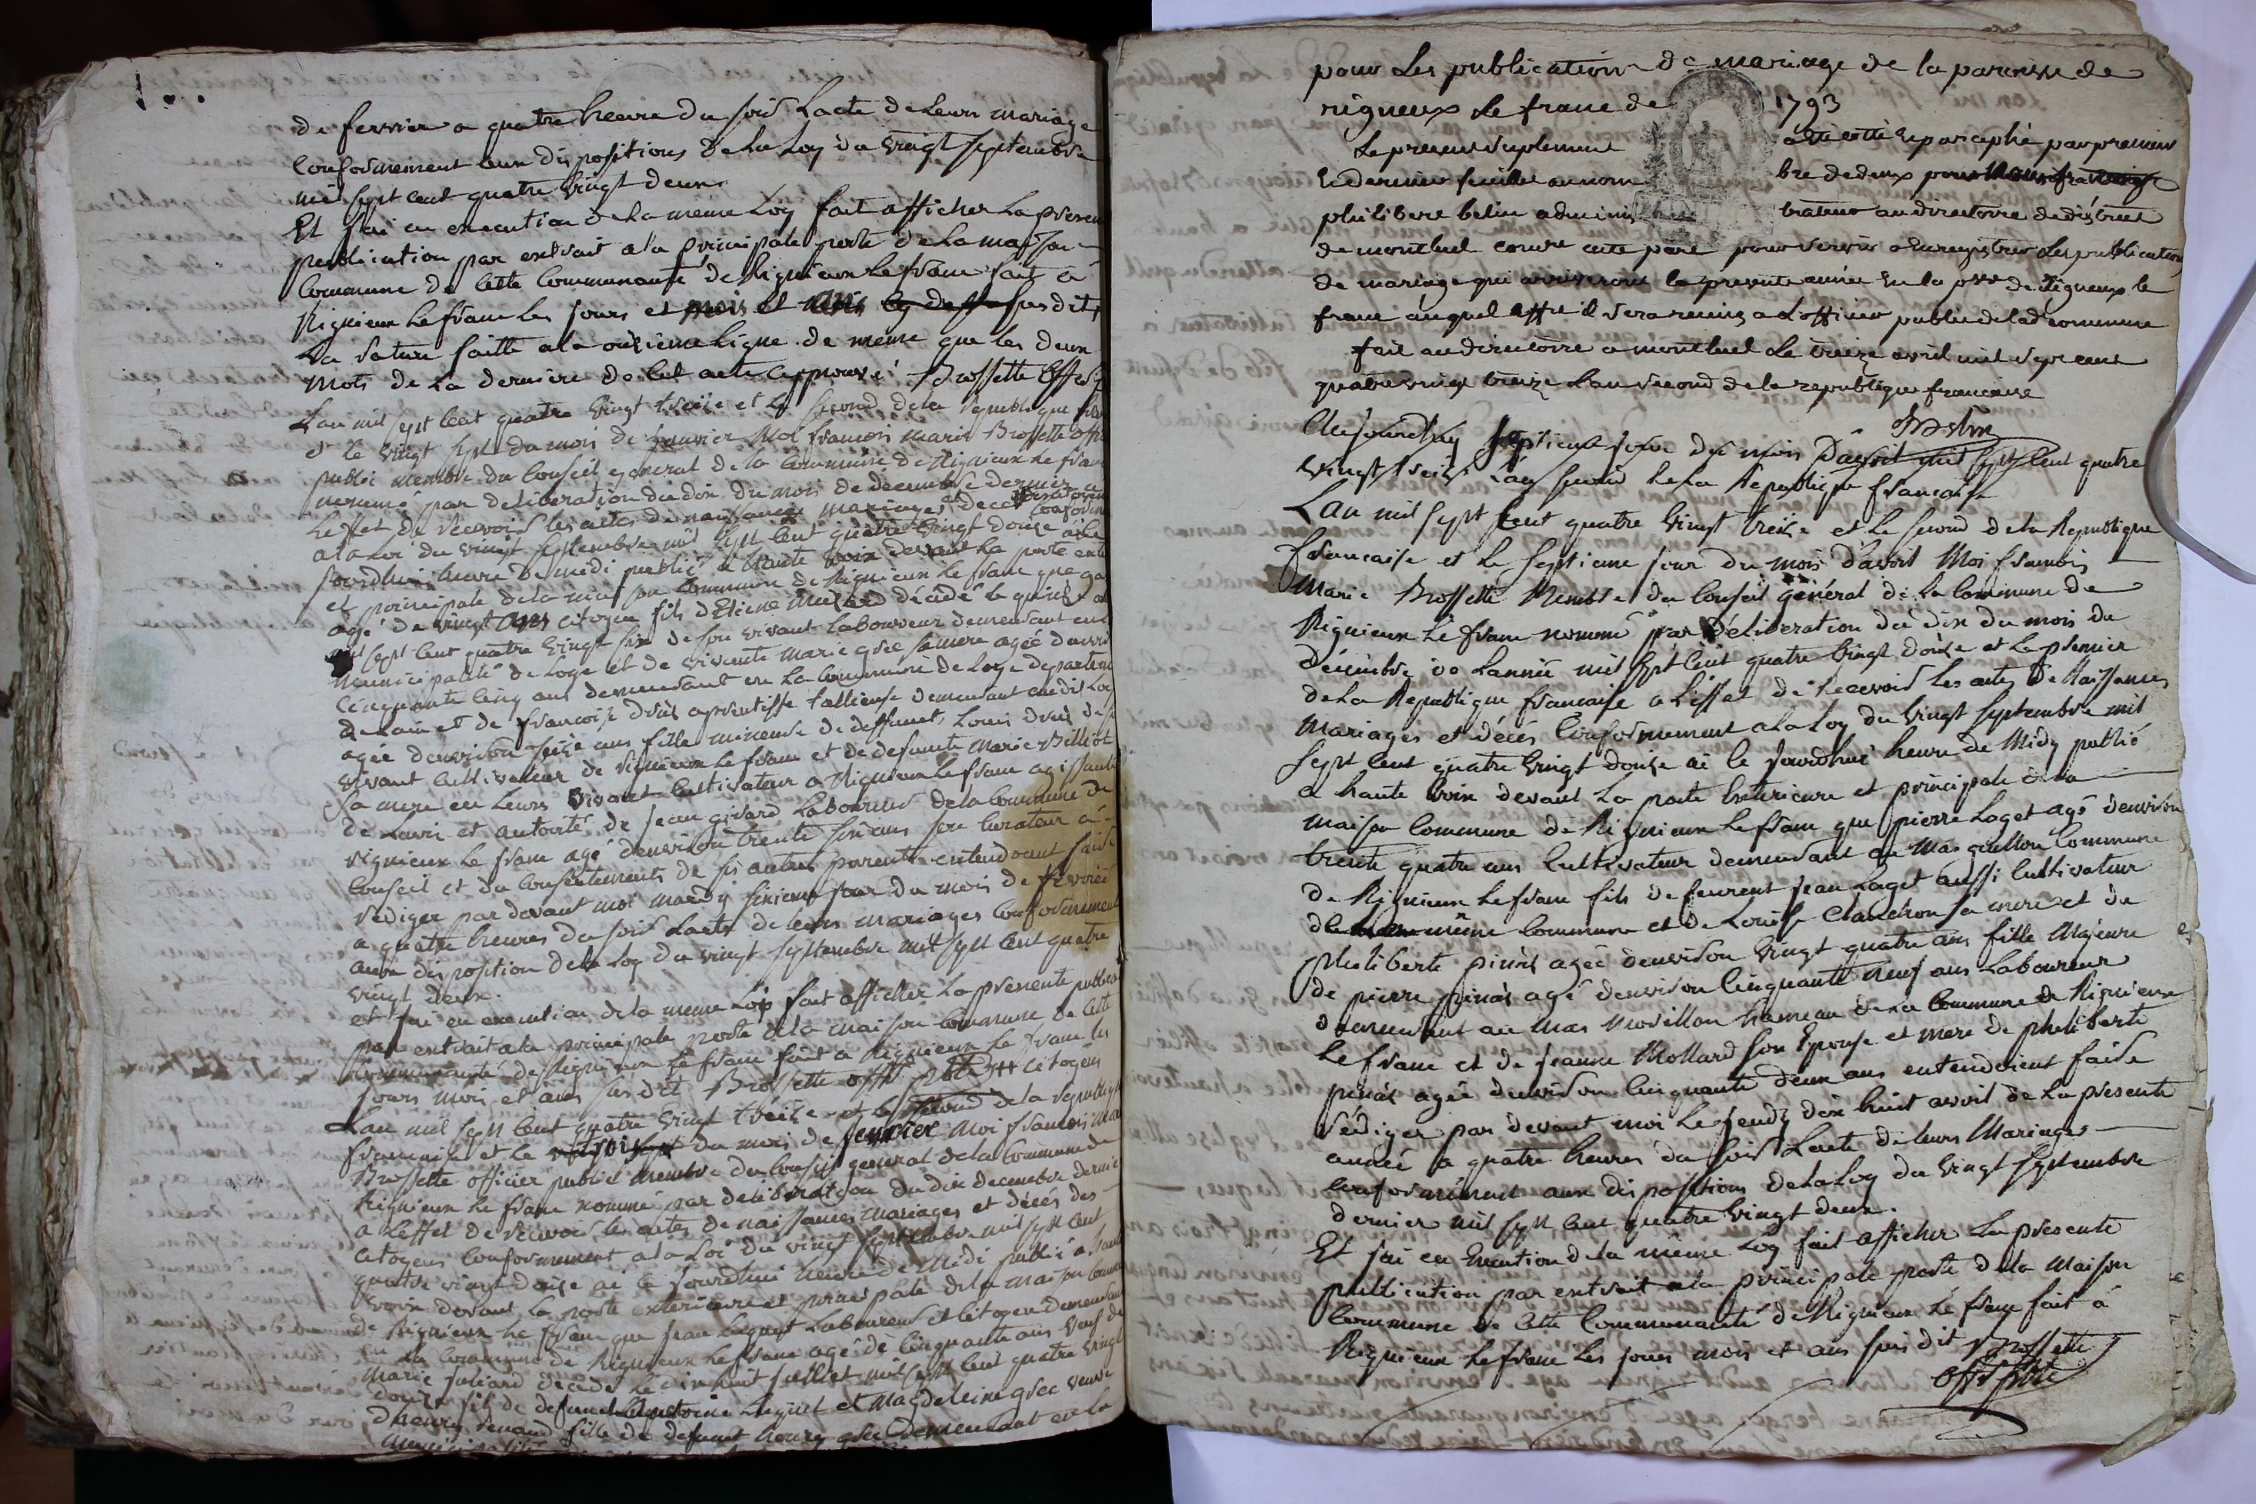 de fevrier a quatre heure du soir Lacte de Leurs mariage
Conformement aux dispositions de la Loy du vingt septembre
mil sept cent quatre vingt deux
Et jai en execution de la meme Loy fait afficher La presente
publication par extrait a la principale porte de la maison
commune de cette communauté de Rignieux Le franc fait a
Rignieux Le franc Les jours et mois et ans susdits
La rature faitte a la onzieme Ligne de meme que les deux
mots de La derniere de cet acte approuvé Brossette
Lan mil sept cent quatre vingt treize et le second de la republique
et le vingt sept du mois de janvier Moi francois marie Brossette
public membre du Conseil general de la Commune de Rignieux Le franc
nommé par deliberation du dix du mois de decembre dernier a
Leffet de recevoir les actes de naissances mariages et deces
a la Loi du vingt septembre mil sept cent quatre vingt douze ai le
jourdhui heure de midi publié a haute voix devant La porte
et principale de la maison commune de Rignieux le franc que
agé de vingt ans citoyen fils dEtiene decédé le quinze
mil sept cent quatre vingt six de son vivant Laboureur demeurant en
municipalité de Loye et de vivante Marie gree sa mere agée d'environ
cinquante cinq ans demeurant en La commune de Loye departement
de Lain et de francoise druis aprentisse tallieuse demeurant audit Loye
agée denviron seize ans fille mineure de deffunct Louis druis de
vivant cultivateur de rignieux Le franc et de defunte Marie Billiot
sa mere en Leurs vivant cultivateur a Rignieux Le franc agissante
de Lavis et autorité de jean girard Laboureur de la commune de
rignieux Le franc agé denviron trente six ans son curateur
conseil et du consentements de ses autres parents entendoient faire
rediger par devant moi mardy sixieme jour du mois de fevrier
a quatre heures du soir Lacte de leurs mariages conformement
aux disposition de la Loy du vingt septembre mil sept cent quatre
vingt deux.
et jai en execution de la meme Lois fait afficher La presente
par extrait a la principale porte de la maison commune de cette
communauté de Rignieux Le franc fait a Rignieux Le franc les
jours mois et ans susdit Brossette citoyens
Lan mil sept cent quatre vingt treize et le second de la republique
francaise et le du mois de fevrier Moi francois
Brossette officier public membre du Conseil general de la Commune de
Rignieux Le franc nommé par deliberation du dix decembre dernier
a Leffet de recevoir les actes de naissances mariages et déces des
citoyens conformement a la Loi du vingt septembre mil sept cent
quatre vingt douze ai le jourdhui heure de Midi publié a haute
voix devant La porte exterieure et principale de la maison
de Rignieux Le franc que jean Laboureur et citoyen demeurant
en La commune de Rignieux Le franc agé de cinquante ans veuf de
Marie decedée Le dix huit juillet mil sept cent quatre vingt
douze fils de defunct et Magdeleine gree veuve
dhenry renaud fille de defunct gree demeurant en la
pour Les publications de mariage de la paroisse de
rigneux le franc de 1793
Le present suplement a été cotté et paraphé par premier
et dernier feuillet au nombre de deux
philibert belin administrateur au directoire de district
de montluel pour servir a enregistrer les publications
de mariage qui arriveront la presente année en la psse de rigneux le
franc auquel effet il sera remis a Lofficier public de lad commune
fait au directoire a montluel Le treize avril mil sept cent
quatre vingt treize Lan second de la republique francaise
Belin
Aujourdhuy septieme jour du mois Davril mil sept cent quatre
vingt treize Lan second de La Republique francaise
Lan mil sept cent quatre vingt treize et Le second de la Republique
francaise et Le septieme jour du mois davril Moi francois
Marie Brossette Membre du Conseil général de La commune de
Rignieux Le franc nommé par deliberation du dix du mois de
décembre de Lannée mil sept cent quatre vingt douze et Le premier
de La Republique francaise a Leffet de Recevoir Les actes de Naissances
Mariages et décés Conformement a La Loy du vingt septembre mil
sept cent quatre vingt douze ai le jourdhui heure de Midy publié
a haute voix devant La porte exterieure et principale de la
maison Commune de Rignieux Le franc que pierre Laget agé denviron
trente quatre ans Cultivateur demeurant au Mas commune
de Rignieux Le franc fils de jean Laget aussi cultivateur
de même commune et de Louise sa mere et de
Philiberte agée denviron vingt quatre ans fille Majeure
de pierre agé denviron cinquante neuf ans Laboureur
demeurant au Mas hameau de La commune de Rignieux
Le franc et de jeanne Mollard son Epouse et mere de philiberte
agée denviron cinquante deux ans entendoient faire
rédiger par devant moi Le dix huit avril de La presente
année a quatre heures du soir Lacte de leurs Mariages
conformément aux dispositions de La Loy du vingt septembre
dernier mil sept cent quatre vingt deux.
Et jai en Execution de La même Loy fait afficher La presente
publication par extrait a la principale porte de la Maison
Commune de Cette Communauté de Rignieux Le franc fait à
Rignieux Le franc Les jours mois et ans susdit Brossette